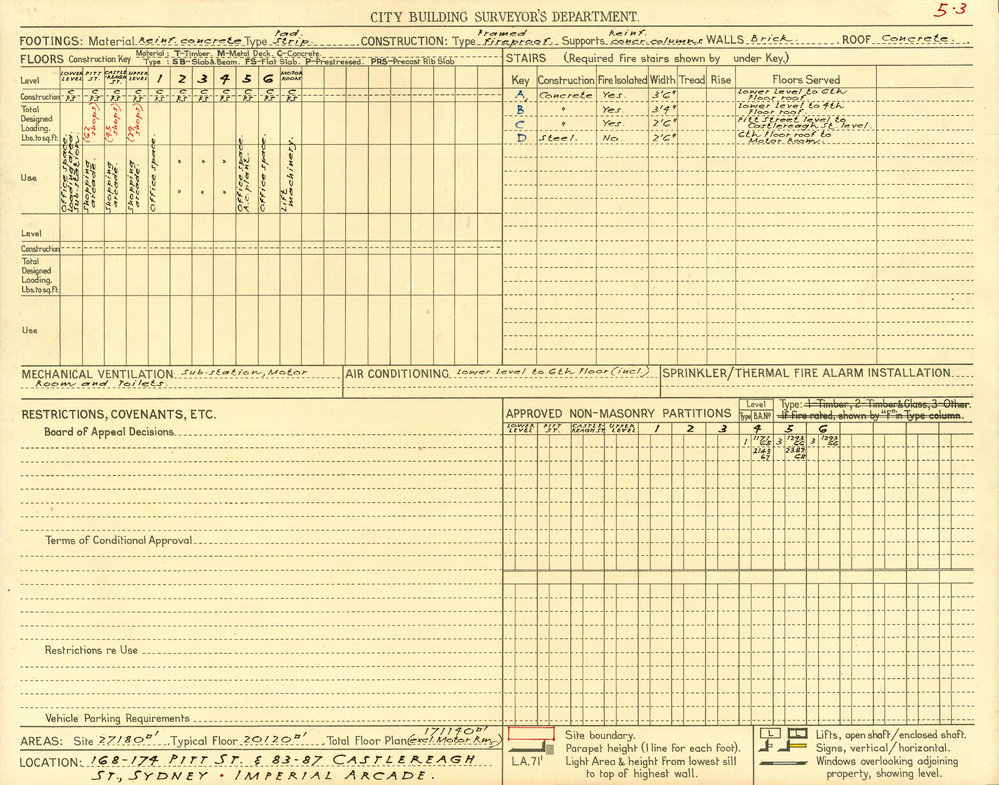 CITY BUILDING SURVEYOR'S DEPARTMENT.
5·3
FOOTINGS: Material Reinf. concrete Type Pad. Strip. CONSTRUCTION: Type Framed fireproof Supports Reinf. concr. columns WALLS Brick. ROOF Concrete.
FLOORS Construction Key Material: T-Timber. M-Metal Deck. C-Concrete.
Type: SB-Slab & Beam. FS-Flat Slab. P-Prestressed. PRS-Precast Rib Slab
Level LOWER LEVEL PITT ST. CASTLEREAGH ST. UPPER LEVEL 1 2 3 4 5 6 MOTOR ROOM
Construction C FS C FS C FS C FS C FS C FS C FS C FS C FS C FS C FS
Total Designed Loading. Lbs. to sq. ft. (42 shops) (45 shops) (39 shops)
Use Office space. Loading area. Sub-station. Shopping arcade. Shopping arcade. Shopping arcade. Office space. " " " " " " Office space. A.C. plant. Office space. Lift machinery.
Level
Construction
Total
Designed
Loading.
Lbs. to sq. ft.
Use
STAIRS (Required fire stairs shown by under Key.)
Key Construction Fire Isolated Width Tread Rise Floors Served
A Concrete Yes. 3'6" Lower level to 6th Floor roof.
B " Yes. 3'4" Lower level to 4th Floor roof.
C " Yes. 2'6" Pitt Street level to Castlereagh St. level.
D Steel. No. 2'6" 6th Floor roof to Motor Room.
MECHANICAL VENTILATION Sub-station, Motor
Room and Toilets.
AIR CONDITIONING Lower level to 6th Floor (incl.)
SPRINKLER/THERMAL FIRE ALARM INSTALLATION
RESTRICTIONS, COVENANTS, ETC.
Board of Appeal Decisions
Terms of Conditional Approval
Restrictions re Use
Vehicle Parking Requirements
APPROVED NON-MASONRY PARTITIONS Level Type B.A.Nº Type: 1-Timber, 2-Timber & Glass, 3-Other.
If fire rated, shown by "F" in Type column.
LOWER LEVEL PITT ST. CASTLEREAGH ST. UPPER LEVEL 1 2 3 4 5 6
1 1171 65 3 1293 66 3 1293 66
2143 67 2387 68
AREAS: Site 27180□' Typical Floor 20120□' Total Floor Plan 171140□' (excl. Motor Rm)
LOCATION: 168-174 PITT ST. & 83-87 CASTLEREAGH
ST., SYDNEY · IMPERIAL ARCADE.
Site boundary.
Parapet height (1 line for each foot).
L.A.71' Light Area & height from lowest sill
to top of highest wall.
L Lifts, open shaft/enclosed shaft.
Signs, vertical/horizontal.
Windows overlooking adjoining
property, showing level.